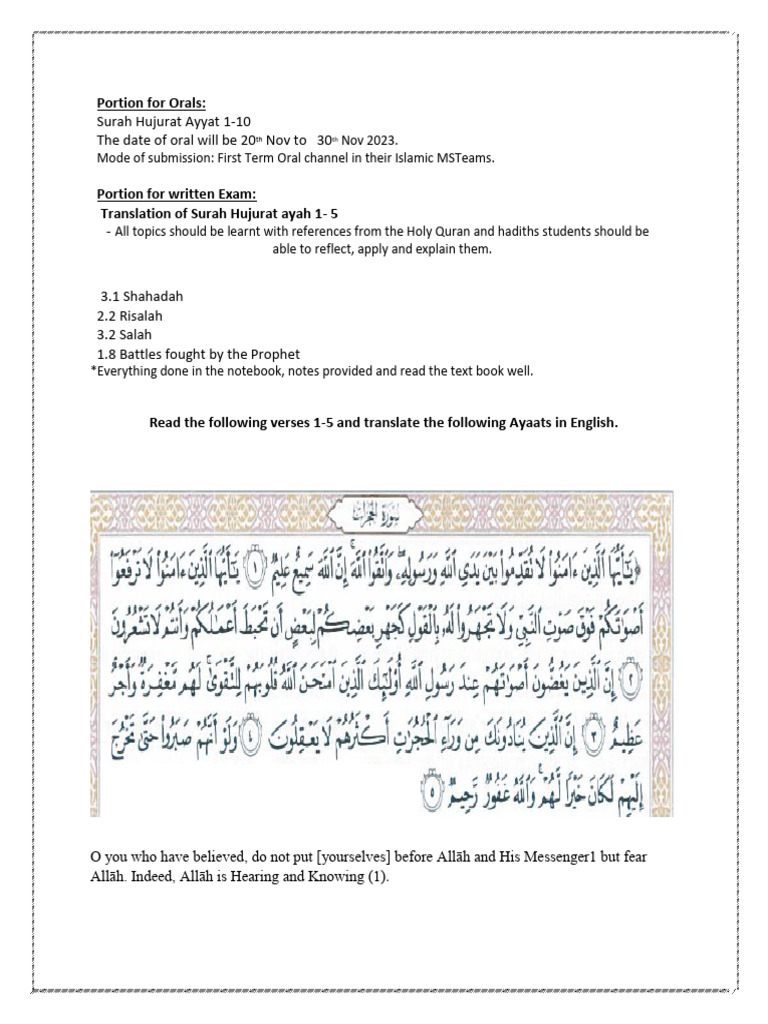 Portion for Orals:
Surah Hujurat Ayyat 1-10
The date of oral will be 20th Nov to 30th Nov 2023.
Mode of submission: First Term Oral channel in their Islamic MSTeams.
Portion for written Exam:
Translation of Surah Hujurat ayah 1- 5
- All topics should be learnt with references from the Holy Quran and hadiths students should be
able to reflect, apply and explain them.
3.1 Shahadah
2.2 Risalah
3.2 Salah
1.8 Battles fought by the Prophet
*Everything done in the notebook, notes provided and read the text book well.
Read the following verses 1-5 and translate the following Ayaats in English.
سورة الحجرات
﴿يَٰٓأَيُّهَا ٱلَّذِينَ ءَامَنُوا۟ لَا تُقَدِّمُوا۟ بَيْنَ يَدَىِ ٱللَّهِ وَرَسُولِهِۦ ۖ وَٱتَّقُوا۟ ٱللَّهَ ۚ إِنَّ ٱللَّهَ سَمِيعٌ عَلِيمٌ ١ يَٰٓأَيُّهَا ٱلَّذِينَ ءَامَنُوا۟ لَا تَرْفَعُوٓا۟
أَصْوَٰتَكُمْ فَوْقَ صَوْتِ ٱلنَّبِىِّ وَلَا تَجْهَرُوا۟ لَهُۥ بِٱلْقَوْلِ كَجَهْرِ بَعْضِكُمْ لِبَعْضٍ أَن تَحْبَطَ أَعْمَٰلُكُمْ وَأَنتُمْ لَا تَشْعُرُونَ
٢ إِنَّ ٱلَّذِينَ يَغُضُّونَ أَصْوَٰتَهُمْ عِندَ رَسُولِ ٱللَّهِ أُو۟لَٰٓئِكَ ٱلَّذِينَ ٱمْتَحَنَ ٱللَّهُ قُلُوبَهُمْ لِلتَّقْوَىٰ ۚ لَهُم مَّغْفِرَةٌ وَأَجْرٌ
عَظِيمٌ ٣ إِنَّ ٱلَّذِينَ يُنَادُونَكَ مِن وَرَآءِ ٱلْحُجُرَٰتِ أَكْثَرُهُمْ لَا يَعْقِلُونَ ٤ وَلَوْ أَنَّهُمْ صَبَرُوا۟ حَتَّىٰ تَخْرُجَ
إِلَيْهِمْ لَكَانَ خَيْرًا لَّهُمْ ۚ وَٱللَّهُ غَفُورٌ رَّحِيمٌ ٥
O you who have believed, do not put [yourselves] before Allāh and His Messenger1 but fear
Allāh. Indeed, Allāh is Hearing and Knowing (1).